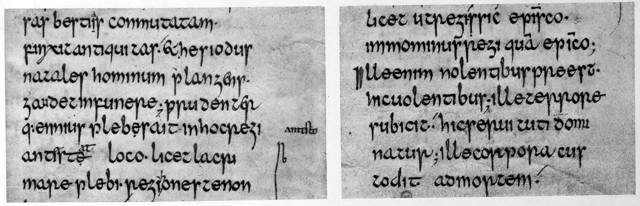 ras bestiis commutatam.
finxit antiquitas. & hesiodus
natales hominum plangens.
gaudet infunere; prudenter
q. ennius plebes ait inhocregi
antistat loco. licet lacri
mare plebi. regi honestenon
licet utregi sic episco.
immominus regi quā epico;
Illeenim nolentibus preest.
hicuolentibus; illeterrore
subicit. hicseruituti domi
natur; illecorpora cus
todit admortem.